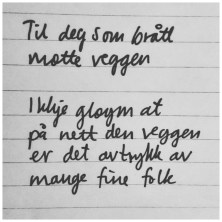 Til deg som brått
møtte veggen
Ikkje gløym at
på nett den veggen
er det avtrykk av
mange fine folk